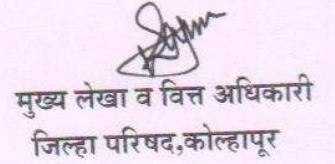 मुख्य लेखा व वित्त अधिकारी
जिल्हा परिषद,कोल्हापूर